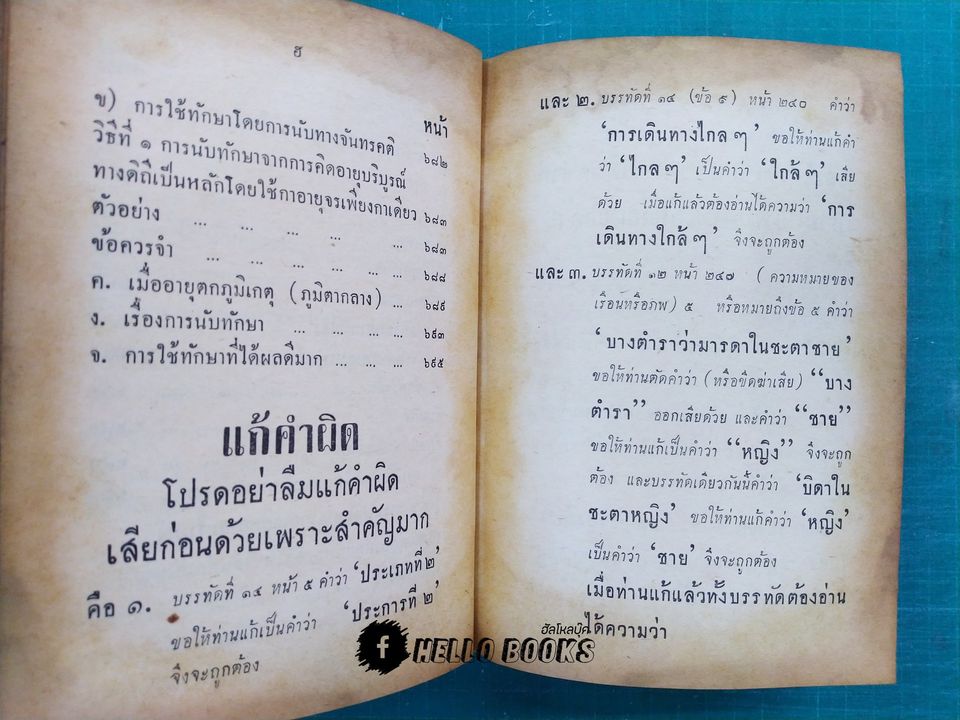 ฮ
หน้า
ข) การใช้ทักษาโดยการนับทางจันทรคติ ๖๘๒
วิธีที่ ๑ การนับทักษาจากการคิดอายุบริบูรณ์
ทางดิถีเป็นหลักโดยใช้กาอายุจรเพียงกาเดียว ๖๘๓
ตัวอย่าง ... ... ... ... ... ๖๘๓
ข้อควรจำ ... ... ... ... ... ๖๘๘
ค. เมื่ออายุตกภูมิเกตุ (ภูมิตากลาง) ... ๖๘๙
ง. เรื่องการนับทักษา ... ... ... ๖๙๓
จ. การใช้ทักษาที่ได้ผลดีมาก ... ... ... ๖๙๕
แก้คำผิด
โปรดอย่าลืมแก้คำผิด
เสียก่อนด้วยเพราะสำคัญมาก
คือ ๑. บรรทัดที่ ๑๔ หน้า ๕ คำว่า ‘ประเภทที่ ๒’
ขอให้ท่านแก้เป็นคำว่า ‘ประการที่ ๒’
จึงจะถูกต้อง
และ ๒. บรรทัดที่ ๑๔ (ข้อ ๙) หน้า ๒๔๐ คำว่า
‘การเดินทางไกล ๆ’ ขอให้ท่านแก้คำ
ว่า ‘ไกล ๆ’ เป็นคำว่า ‘ใกล้ ๆ’ เสีย
ด้วย เมื่อแก้แล้วต้องอ่านได้ความว่า ‘การ
เดินทางใกล้ ๆ’ จึงจะถูกต้อง
และ ๓. บรรทัดที่ ๑๒ หน้า ๒๔๗ (ความหมายของ
เรือนหรือภพ) ๕ หรือหมายถึงข้อ ๕ คำว่า
‘บางตำราว่ามารดาในชะตาชาย’
ขอให้ท่านตัดคำว่า (หรือขีดฆ่าเสีย) “บาง
ตำรา” ออกเสียด้วย และคำว่า “ชาย”
ขอให้ท่านแก้เป็นคำว่า “หญิง” จึงจะถูก
ต้อง และบรรทัดเดียวกันนี้คำว่า ‘บิดาใน
ชะตาหญิง’ ขอให้ท่านแก้คำว่า ‘หญิง’
เป็นคำว่า ‘ชาย’ จึงจะถูกต้อง
เมื่อท่านแก้แล้วทั้งบรรทัดต้องอ่าน
ได้ความว่า
ฮัลโหลบุ๊ค
f HELLO BOOKS